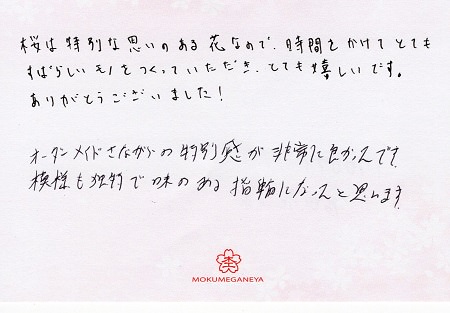 桜は特別な思いのある花なので、時間をかけてとても
すばらしいモノをつくっていただき、とても嬉しいです。
ありがとうございました!
オーダーメイドさながらの特別感が非常に良かったです。
模様も独特で味のある指輪になったと思います
MOKUMEGANEYA